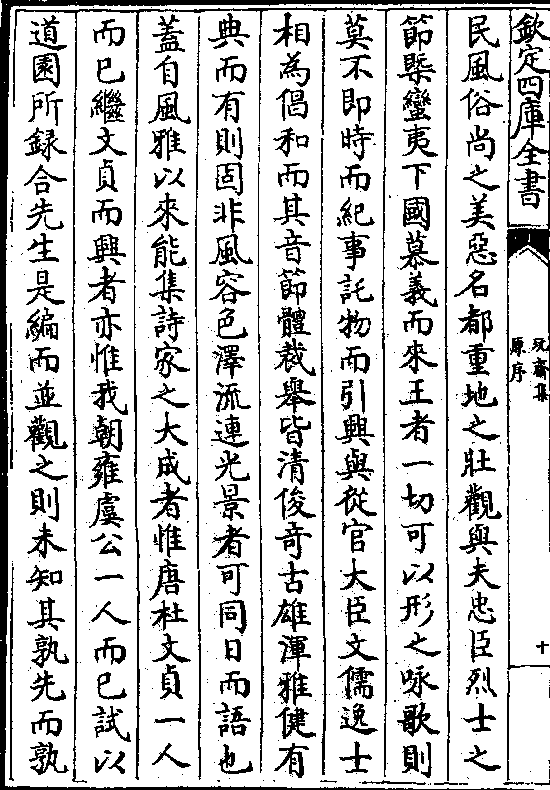 欽定四庫全書
玩齋集
原序
十
民風俗尚之美惡名都重地之壯觀與夫忠臣烈士之
節槩蠻夷下國慕義而來王者一切可以形之咏歌則
莫不即時而紀事託物而引興與從官大臣文儒逸士
相為倡和而其音節體裁舉皆清俊竒古雄渾雅健有
典而有則固非風容色澤流連光景者可同日而語也
蓋自風雅以來能集詩家之大成者惟唐杜文貞一人
而已繼文貞而興者亦惟我朝雍虞公一人而已試以
道園所録合先生是編而並觀之則未知其孰先而孰